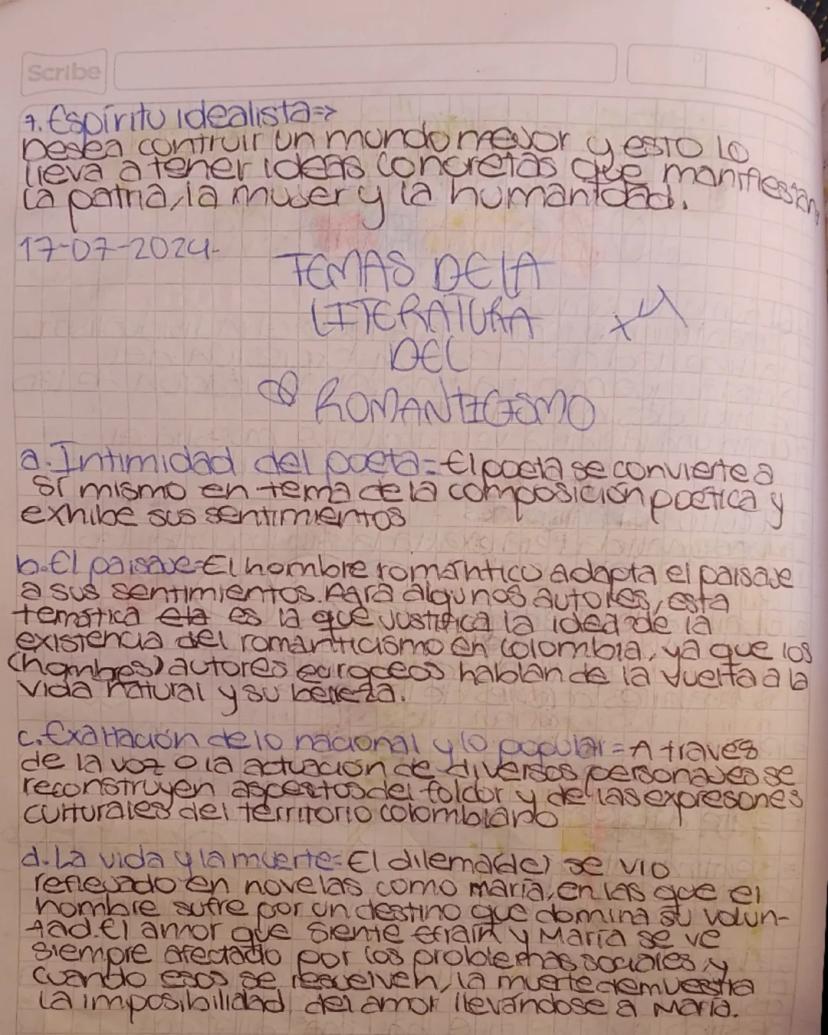 Scribe
7. Espíritu idealista=>
Desea contruir un mundo mejor y esto lo
lleva a tener ideas concretas que manifiestan
la patria, la mujer y la humanidad.
17-07-2024-
TEMAS DE LA
LITERATURA
DEL
ROMANTICISMO
a. Intimidad del poeta= El poeta se convierte a
sí mismo en tema de la composición poética y
exhibe sus sentimientos
b. El paisaje= El hombre romántico adapta el paisaje
a sus sentimientos. Para algunos autores, esta
temática es la que justifica la idea de la
existencia del romanticismo en colombia, ya que los
(hombres) autores europeos hablan de la vuelta a la
vida natural y su belleza.
c. Exaltación de lo nacional y lo popular= A traves
de la voz o la actuación de diversos personajes se
reconstruyen aspestos del folclor y de las expresones
culturales del territorio colombiano
d. La vida y la muerte= El dilema(de) se vio
reflejado en novelas como maría, en las que el
hombre sufre por un destino que domina su volun-
tad. El amor que siente efraín y María se ve
siempre afectado por los problemas sociales, y
cuando esos se resuelven, la muerte demuestra
la imposibilidad del amor llevándose a María.